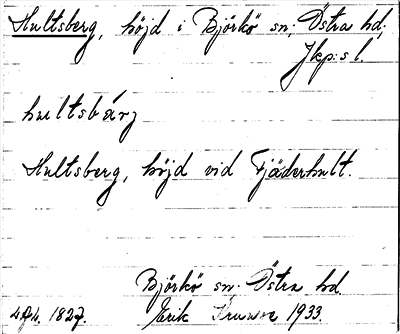 Hultsberg, höjd i Björkö sn; Östra hd;
Jkp:s l.
hultsbärj
Hultsberg, höjd vid Fjäderhult.
Björkö sn. Östra hd.
1827. Erik 1933.